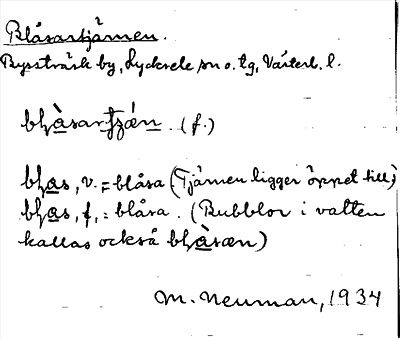 Blåsartjärnen.
Bysträsk by, Lycksele sn o. tg, Västerb. l.
bḷàsarțzán. (f.)
bḷas, v. = blåsa (Tjärnen ligger öppet till)
bḷas, f, = blåsa. (Bubblor i vatten
kallas också bḷàsæn)
M. Neuman, 1934